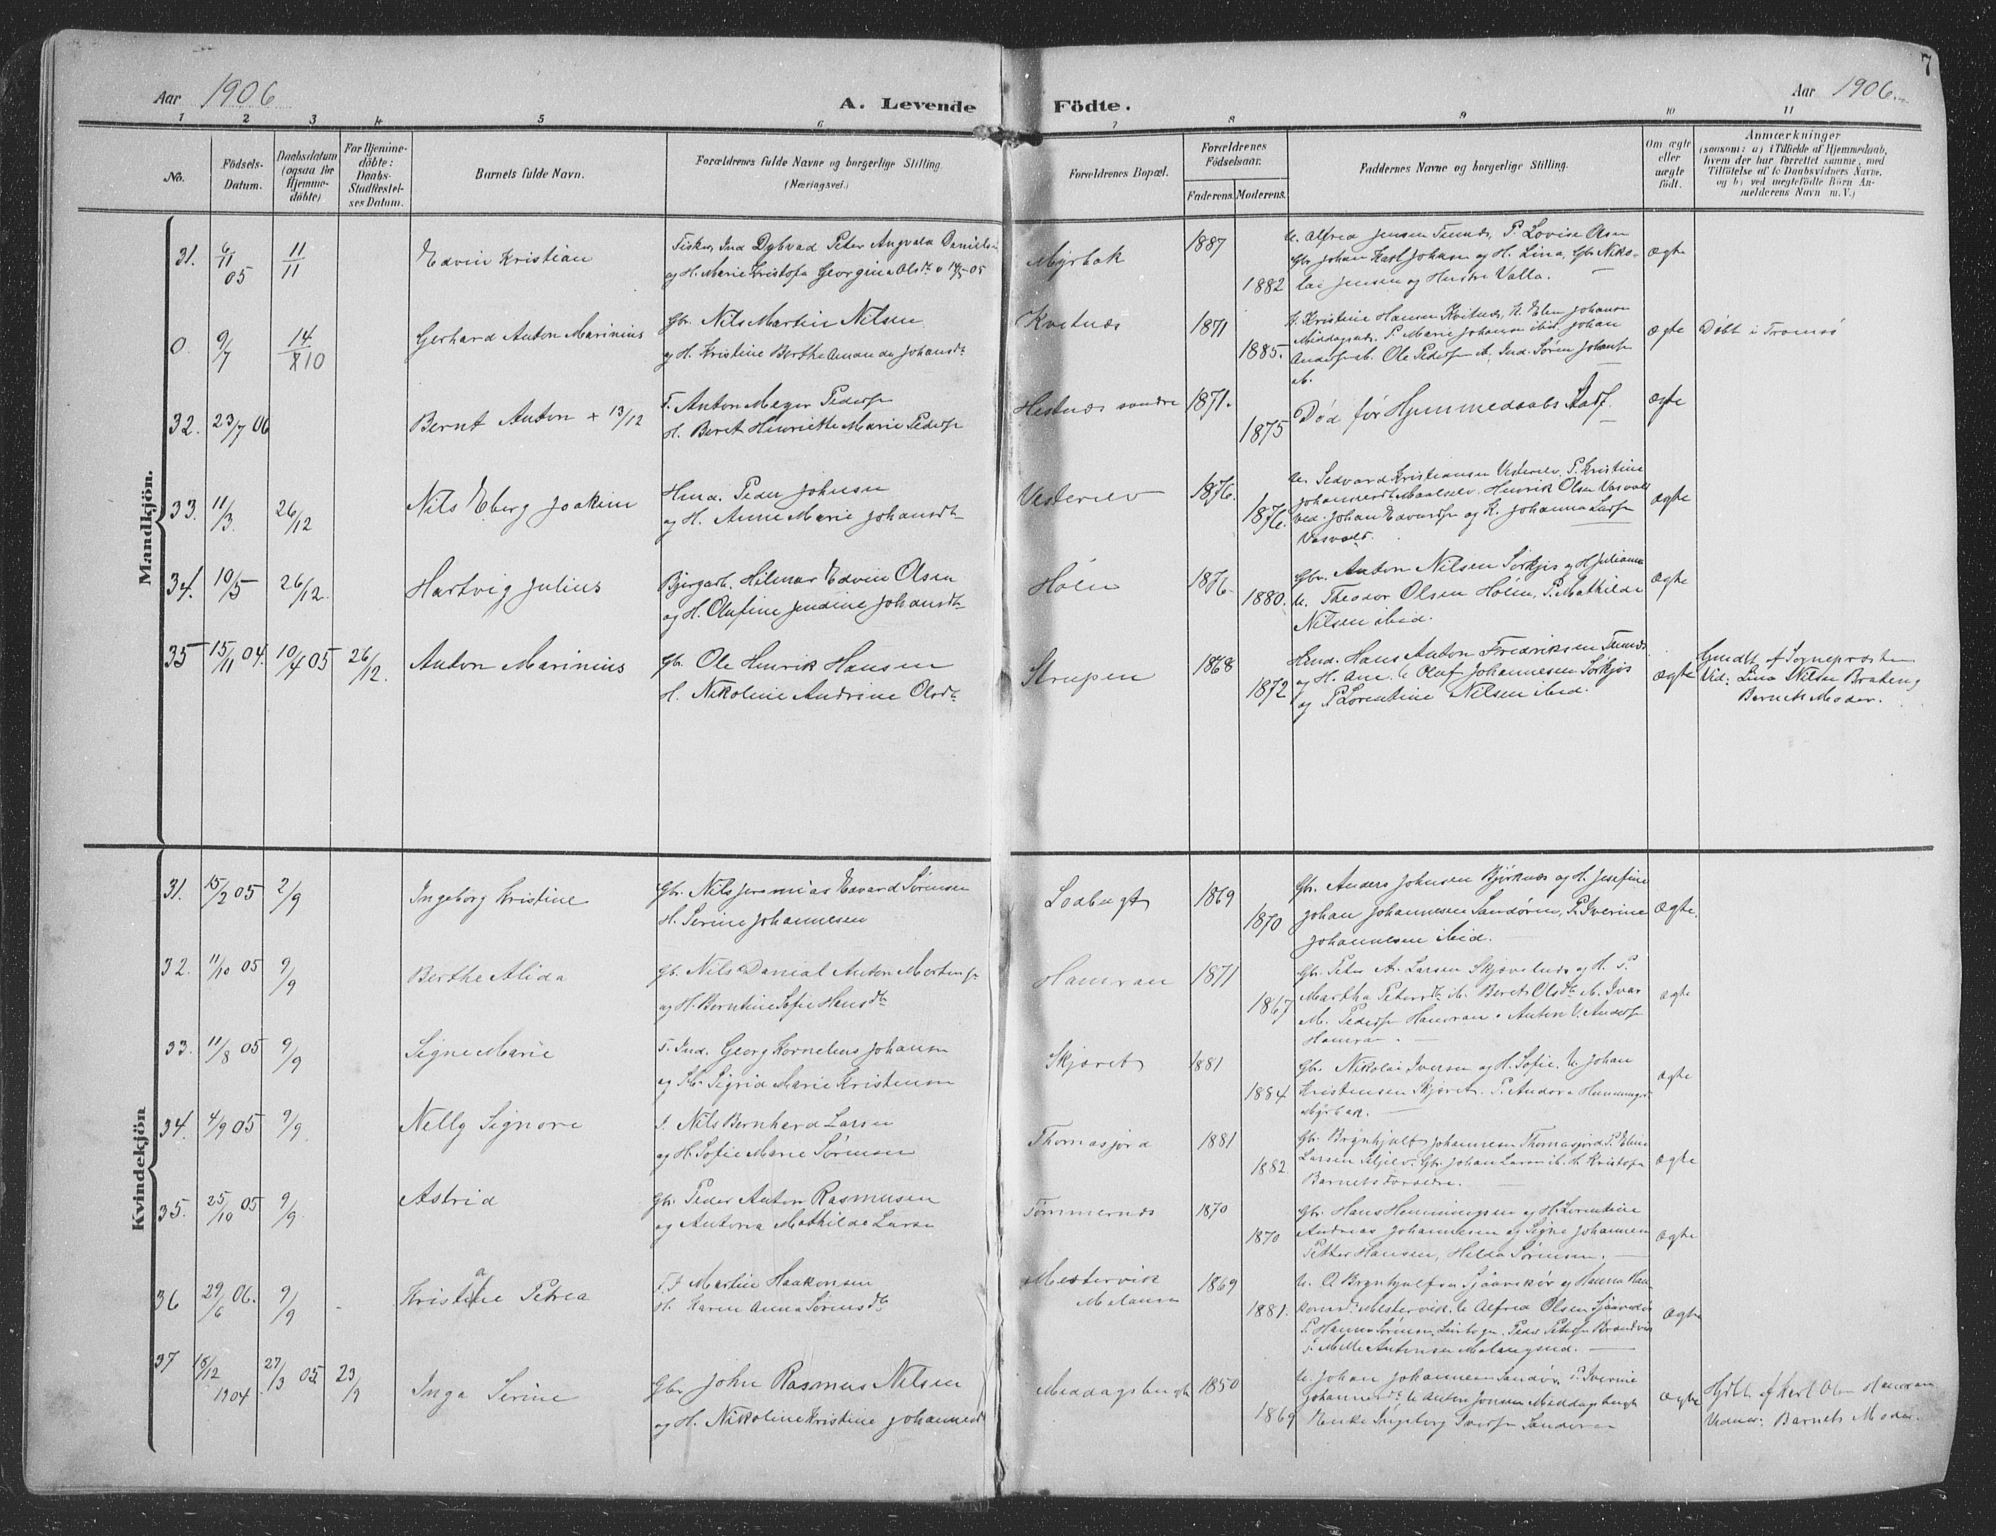 7
Aar 1906
A. Levende Födte.
Aar 1906
1 2 3 4 5 6 7 8 9 10 11
No.
Födsels-
Datum.
Daabsdatum
(ogsaa for
Hjemme-
döbte)
For Hjemme-
döbte:
Daabs-
Stadfæstel-
ses Datum.
Barnets fulde Navn.
Forældrenes fulde Navne og borgerlige Stilling.
(Næringsvei.)
Forældrenes Bopæl.
Forældrenes
Födselsaar.
Faderens. Moderens.
Faddernes Navne og borgerlige Stilling.
Om ægte
eller
uægte
födt.
Anmærkninger
(saasom: a) i Tilfælde af Hjemmedaab,
hvem der har forrettet samme, med
Tilföielse af to Daabsvidners Navne,
og b) ved uægtefödte Börn An-
melderens Navn m. V.)
Mandkjön.
31. 6/11 05 11/11 Edvin Kristian
Fisker, Ind Dybvad Peter Angvald Daniels
og H. Marie Kristofa Georgine Olsdt
Myrbak 1887 1882
U. Alfred Jensen P. Lovise Olsen
Gbr Johan Karl Johnsen og H. Lina, Gbr Niko-
lai Jensen og Hustru Valla.
ægte
0. 9/7 14/10 Gerhard Anton Marinius
Gbr. Nils Martin Nilsen
og H. Kristine Berthe Amanda Johansdt
Kvitnæs 1871 1885.
K. Kristine Hansen Kvitnæs, U. Elen Johansen
P. Marie Johansen ibid Johan
Ole Peders ib. Ind. Sören Johans
ib.
ægte Döbt i Tromsö
32. 23/7 06 Bernt Anton + 13/12
F. Anton Meyer Peders
H. Beret Henriette Marie Peders
Hestnæs søndre 1871. 1875
Död för Hjemmedaabs Stadf.
ægte
33. 11/3 26/12 Nils Eberg Joakim
Hmd. Peder Johnsen
og H. Anne Marie Johansdt
Vesterelv 1876. 1876.
U. Sedvard Kristiansen Vesterelv, P. Kristine
Johannesdt Maalselv. Henrik Olsen
Johan Edvards og K. Johanna Lars
ægte
34. 10/5 26/12. Hartvig Julius
Bygarb. Hilmar Edvin Olsen
og H. Olufine Jendine Johansdt
Hölen 1876. 1880.
Gbr. Anton Nilsen Sörkjos og H Julianna
U. Theodor Olsen Hölen, P. Mathilde
Nilsen ibid.
ægte
35 15/11 04. 10/4 05 26/12. Anton Marinius
Gbr. Ole Henrik Hansen
H. Nikoline Andrine Olsdt
Strupen 1868 1872
Hmd. Hans Anton Fredriksen
og H. Ane. U Olaf Johannesen Sörkjos
og P Lorentine Nilsen ibid.
ægte
af Sognepræsten
Vid: Lina Nilsen Brateng
Barnets Moder.
Kvindekjön
31. 15/2 05 2/9 Ingeborg Kristine
Gbr. Nils Jeremias Edvard Sörensen
H. Serine Johannesen
Lodbugt 1869 1870
Gbr. Anders Johnsen Björknes og H. Josefine
Johan Johannesen Sandören, P. Iverine
Johannesen ibid.
ægte.
32. 11/10 05 9/9 Berthe Alida
Gb. Nils Danial Anton Mortens
og H. Berntine Sofie Hansdt
Hamran 1871 1867
Gbr. Peter A. Larsen Skjævelnæs og H. P.
Martha Petersdt ib. Beret Olsdt ib. Ivar
M. Peders Hamran. Anton V. Anders
Hamran.
ægte
33. 11/8 05 9/9 Signe Marie
F. Ind. Georg Kornelius Johansen
og H. Sigrid Marie Kristensen
Skjæret 1881 1884
Gbr. Nikolai Iversen og H. Sofie. U. Johan
Kristensen Skjæret. P. Andora Hennings
Myrbak.
ægte
34. 4/9 05 9/9. Nelly Signore
F. Nils Bernhard Larsen
og H. Sofie Marie Sörensen
Thomasjord 1881 1882
Gbr. Brynhjulf Johannesen Thomasjord P.
Larsen Gbr. Johan Larsen ib. H. Kristofa
Barnets Forældre.
ægte
35. 25/10 05 9/9. Astrid
Gbr. Peder Anton Rasmusen
og Antona Mathilde Larsen
Tömmernæs 1870 1870
Gbr. Hans Henningsen og H. Lorentine
Andreas Johannesen og Signe Johannesen
Petter Hansen, Hilda Sörensen.
ægte
36 29/6 06. 9/9 - Kristine Petrea
F. J Martin Haakonsen
H. Karen Anna Sörensdt
Mestervik
Malangen
1869 1881.
U. O Brynhjulfsen og Hanna
Mestervik. U Alfred Olsen
P. Hanna Sörensen, Peder Peters
P. Mille Antonsen Malangseid.
ægte
37 15/12 1904 27/3 05. 23/9 Inga Serine
Gbr John Rasmus Nilsen
og H. Nikoline Kristine Johannesdt
Middagsbugt 1850 1869
U Johan Johannesen Sandör, P. Iverine
Johannesdt U. Anton Jonsen Middagsbugt
Enke Ingeborg Ivers Sandören
ægte
Hjdbt. af Karl Olsen Hamran
Vidner: Barnets Moder.